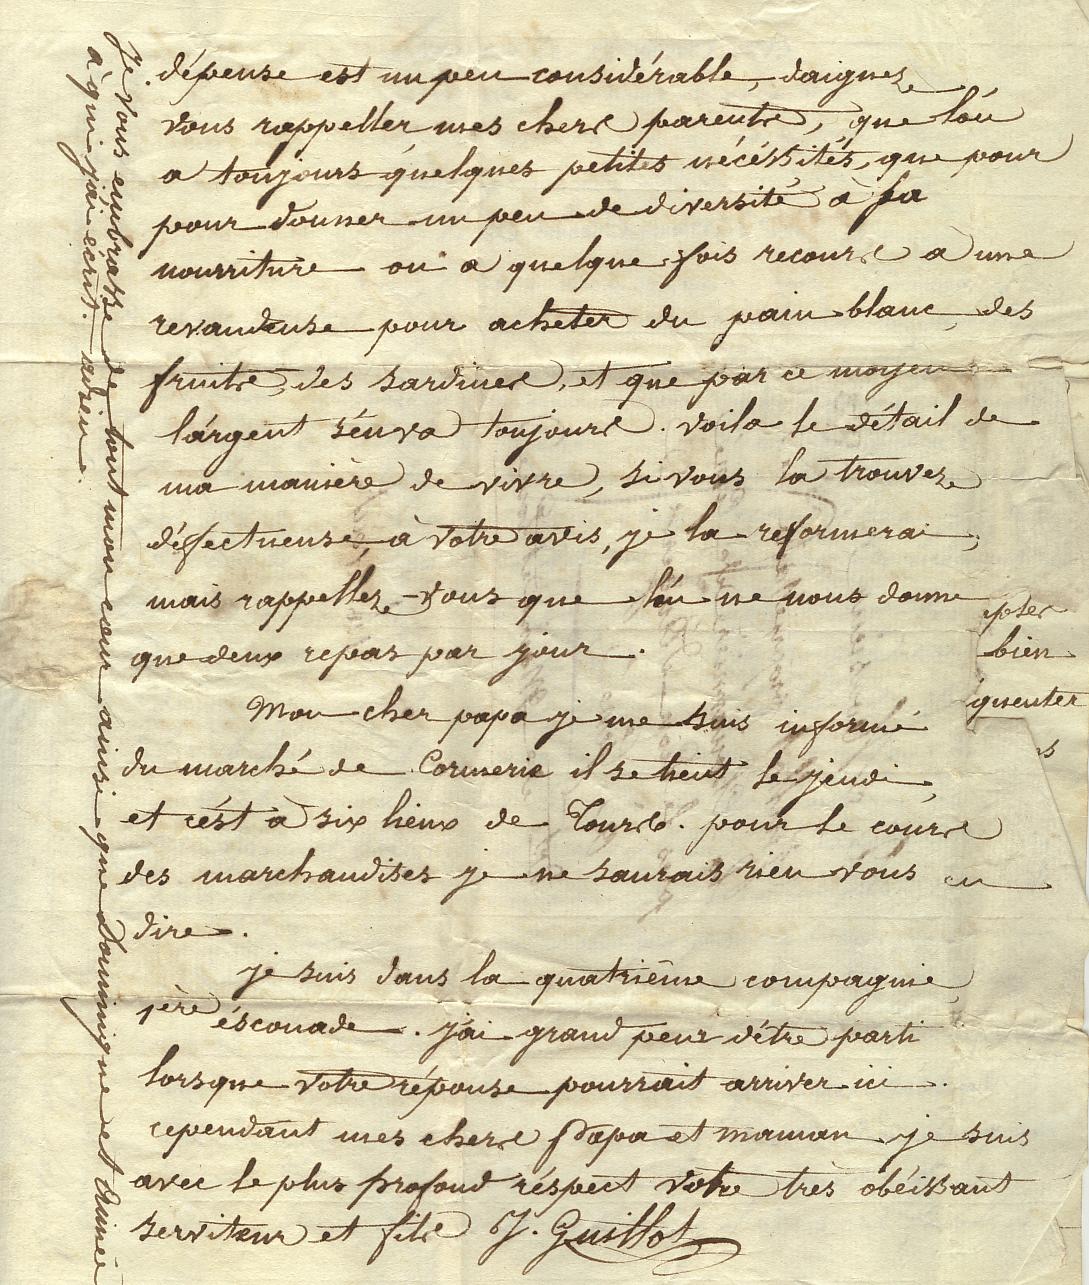 dépense est un peu considérable, daignez
vous rappeller mes chers parents, que l'on
a toujours quelques petites nécéssités, que pour
pour donner un peu de diversité à sa
nourriture on a quelque fois recours a une
revandeuse pour acheter du pain blanc, des
fruits, des sardines, et que par ce moyen
l'argent s'en va toujours. voila le détail de
ma manière de vivre, si vous la trouvez
défectueuse à votre avis, je la reformerai,
mais rappellez-vous que l'on ne nous donne
que deux repas par jour.
Mon cher papa je me suis informé
du marché de Cormerie il se tient le jeudi,
et c'est a six lieux de Tours. pour le cours
des marchandises je ne saurais rien vous en
dire.
je suis dans la quatrième compagnie,
1ère éscouade. j'ai grand peur d'être parti
lorsque votre réponse pourrait arriver ici.
cependant mes chers Papa et maman je suis
avec le plus profond réspect votre très obéissant
serviteur et fils J. Guillot
Je vous embrasse de tout mon cœur ainsi que Dominique et Aimée
à qui j'ai écrit. adieu.
bien